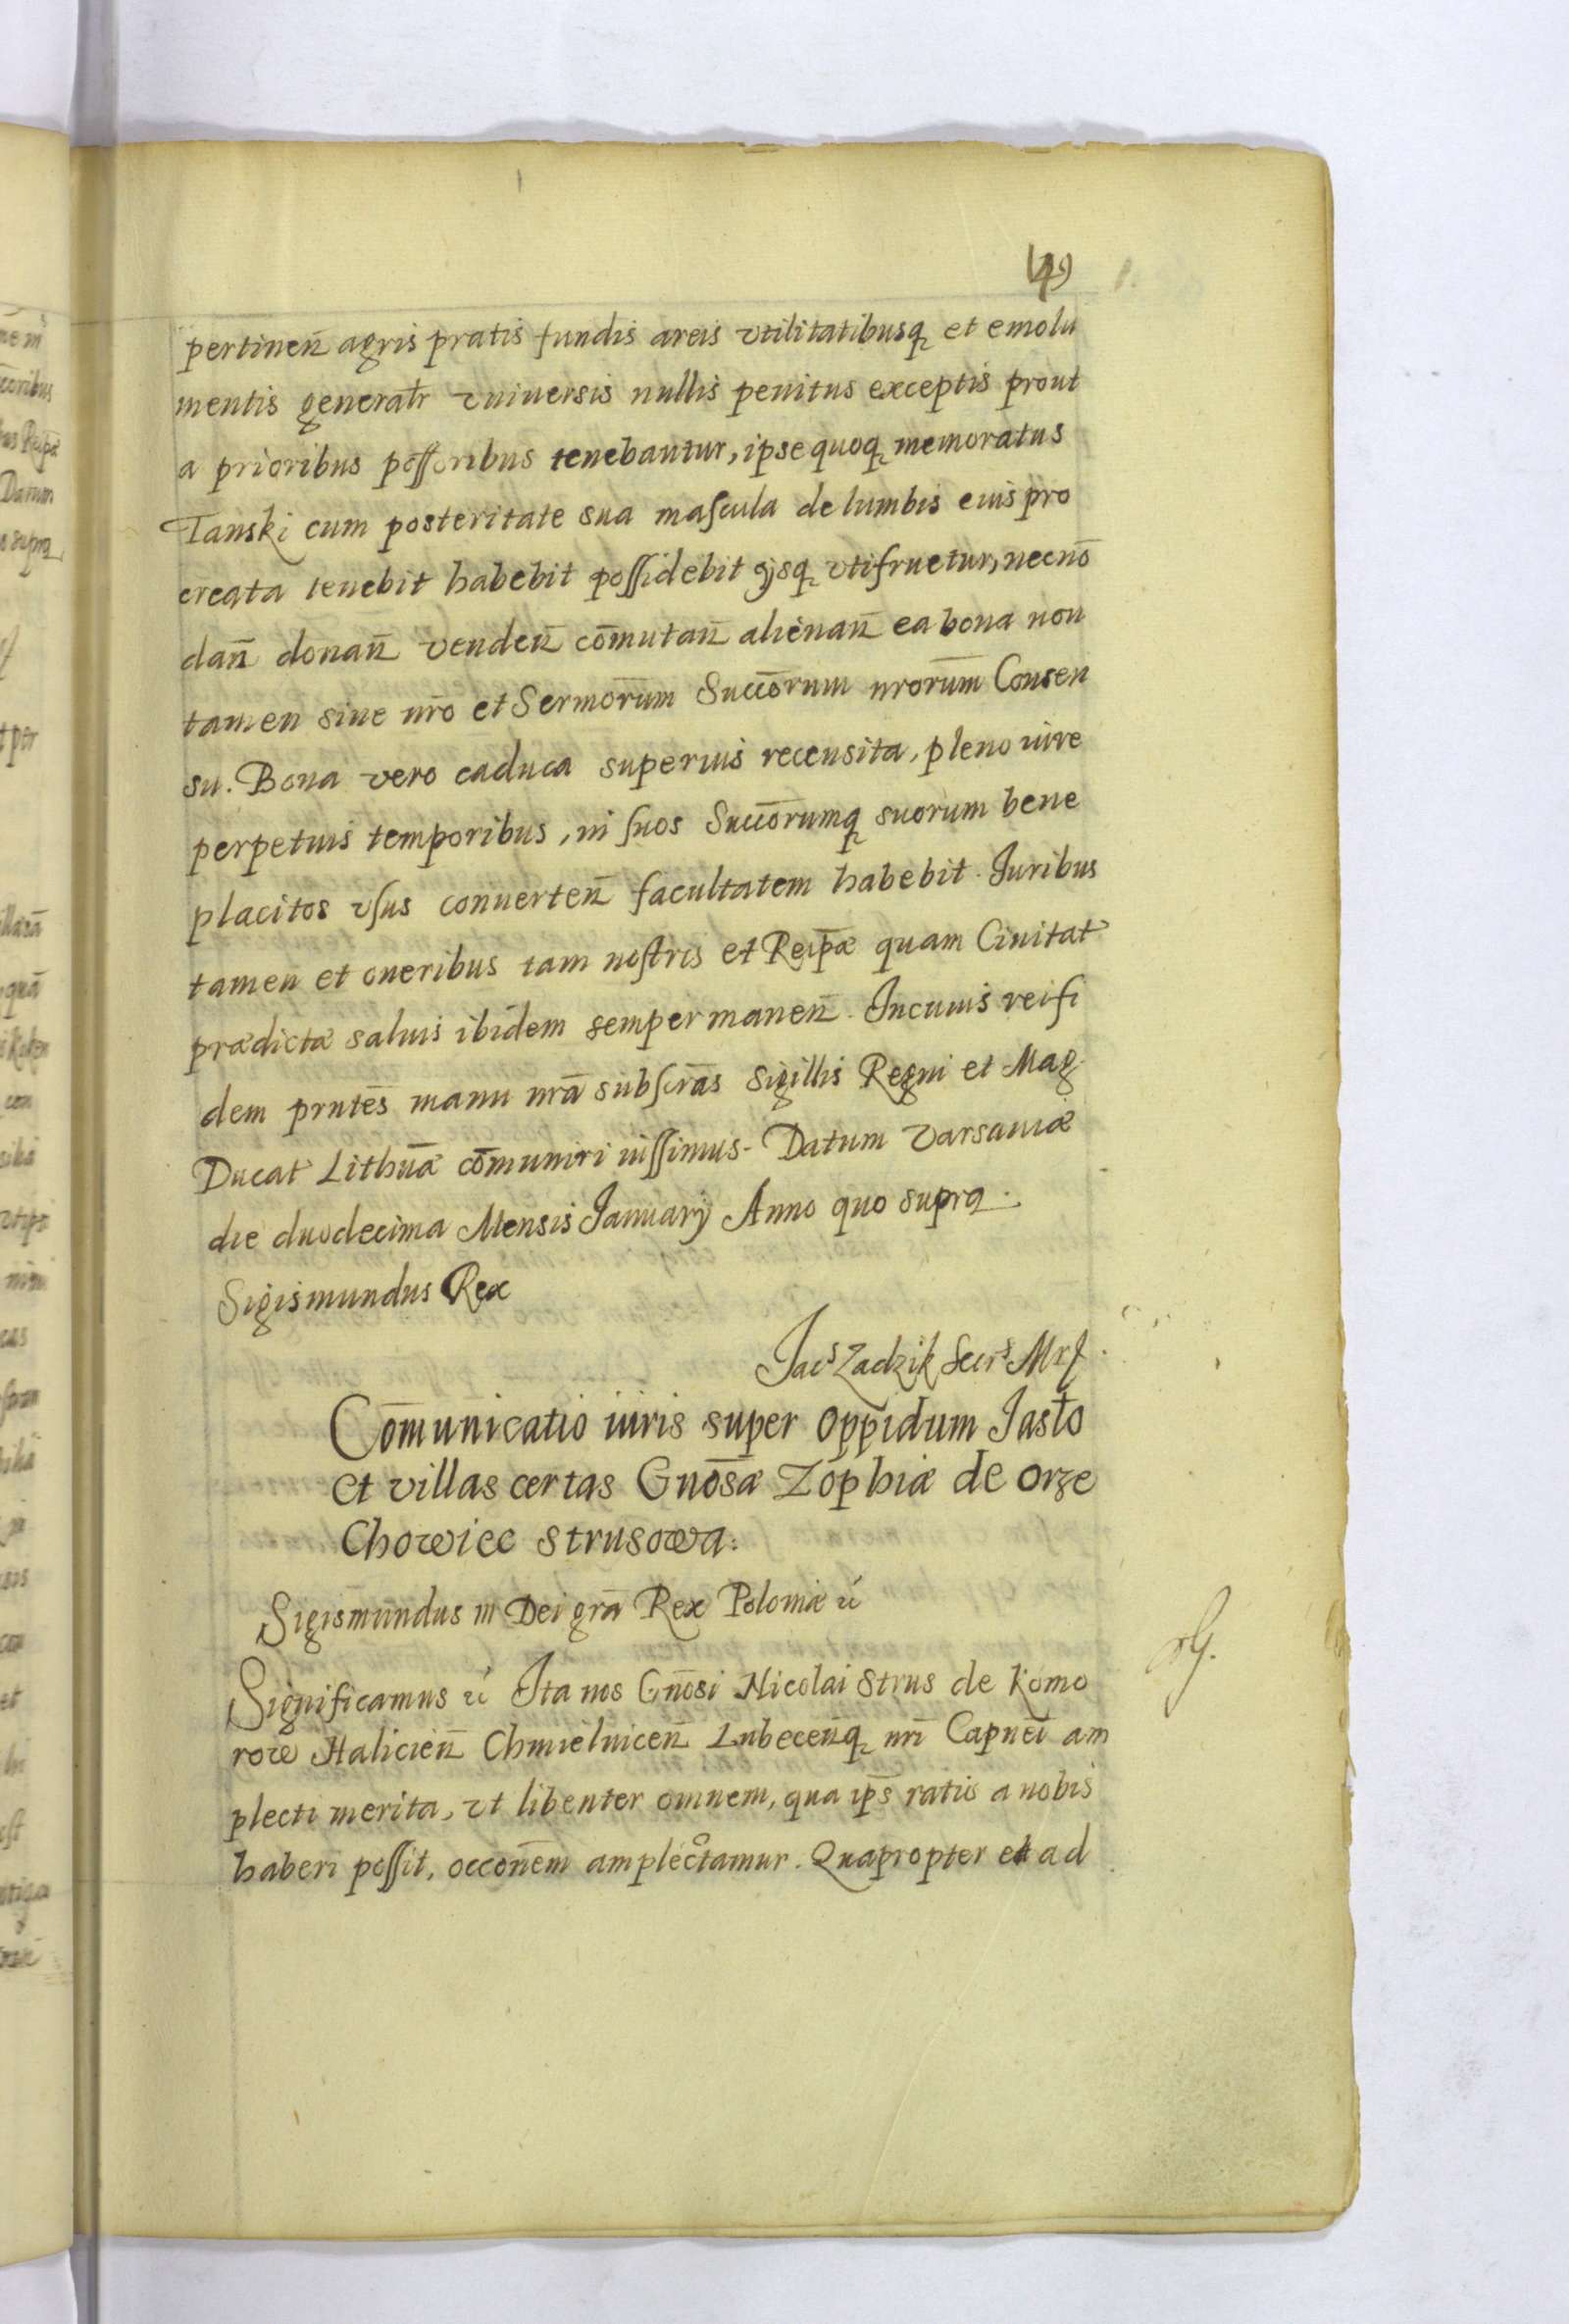 49
pertinen̄ agris pratis fundis areis vtilitatibusq̨ et emolu
mentis generatr̄ vniuersis nullis penitus exceptis prout
a prioribus possoribus tenebantur, ipse quoq̨ memoratus
Tanski cum posteritate sua mascula de lumbis eius pro
creata tenebit habebit possidebit ijsq̨ vtifruetur, necnō
dan̄ donan̄ venden̄ com̄utan̄ alienan̄ ea bona non
tamen sine nr̄o et Sermorum̄ Succōrum nrorum̄ Consen
su. Bona vero caduca superius recensita, pleno iure
perpetuis temporibus, in suos Succōrumq̨ suorum bene
placitos vsus conuerten̄ facultatem habebit. Juribus
tamen et oneribus tam nostris et Reip̄æ quam Ciuitat
prædictæ saluis ibidem semper manen̄. In cuius rei fi
dem prntēs manu nrā subscrās sigillis Regni et Mag
Ducat Lithūæ com̄uniri iussimus. Datum Varsauiæ
die duodecima Mensis Januarij Anno quo supra.
Sigismundus Rex
Jacs Zadzik Secrs Mrf
Com̄unicatio iuris super oppidum Jasło
et villas certas Gnōsæ Zophiæ de Orze
Chowiec Strusowa:
Sigismundus III Dei grā Rex Poloniæ ɛ̃
Significamus ɛ̃ Ita nos Gnōsi Nicolai Strus de Komo
row Halicien̄ Chmielnicen̄ Lubecen̄q̨ nrī Capneī am
plecti merita, vt libenter omnem, qua ips̄ ratio a nobis
haberi possit, occonēm amplectamur. Quapropter et ad